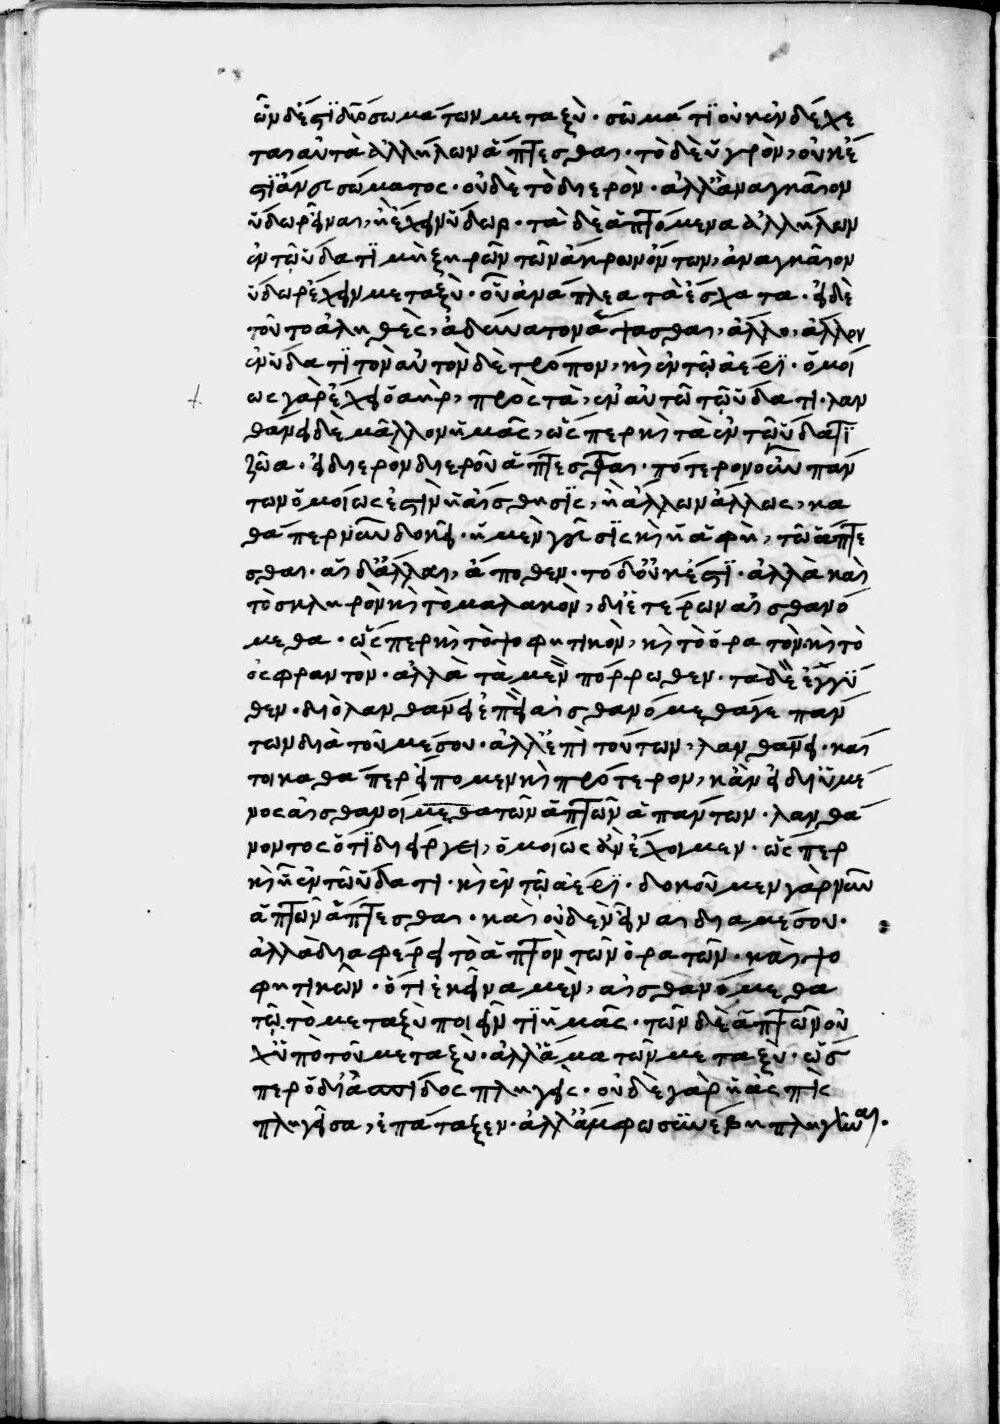 ὧν δέ ἐστι δύο σωμάτων μεταξὺ· σῶμά τι οὐκ ἐνδέχε
ται αὐτὰ ἀλλήλων ἅπτεσθαι· τὸ δὲ ὑγρὸν, οὐκ ἔ
στιν ἄνευ σώματος· οὐδὲ τὸ διερὸν· ἀλλ' ἀναγκαῖον
ὕδωρ εἶναι, ἢ ἔχειν ὕδωρ· τὰ δὲ ἁπτόμενα ἀλλήλων
ἐν τῷ ὕδατι μὴ ξηρῶν τῶν ἄκρων ὄντων, ἀναγκαῖον
ὕδωρ ἔχειν μεταξὺ· οὗ ἀνάπλεα τὰ ἔσχατα· εἰ δὲ
τοῦτο ἀληθὲς, ἀδύνατον ἅψασθαι, ἄλλο, ἄλλου
ἐν ὕδατι τὸν αὐτὸν δὲ τρόπον, καὶ ἐν τῷ ἀέρι· ὁμοί
ως γὰρ ἔχει ὁ ἀὴρ, πρὸς τὰ, ἐν αὐτῷ τῷ ὕδατι· λαν
θάνει δὲ μᾶλλον ἡμᾶς, ὥσπερ καὶ τὰ ἐν τῷ ὕδατι
ζῶα· εἰ διερὸν διεροῦ ἅπτεσθαι· πότερον οὖν πάν
των ὁμοίως ἐστὶν ἡ αἴσθησις, ἢ ἄλλων ἄλλως, κα
θάπερ νῦν δοκεῖ· ἡ μὲν γεῦσις καὶ ἡ ἁφὴ, τῷ ἅπτε
σθαι· αἱ δ' ἄλλαι, ἄποθεν· τὸ δ' οὐκ ἔστι· ἀλλὰ καὶ
τὸ σκληρὸν καὶ τὸ μαλακὸν, δι' ἑτέρων αἰσθανό
μεθα· ὥσπερ καὶ τὸ ψοφητικὸν, καὶ τὸ ὁρατὸν καὶ τὸ
ὀσφραντὸν· ἀλλὰ τὰ μὲν πόρρωθεν· τὰ δὲ ἐγγύ
θεν· διὸ λανθάνει ἐπεὶ αἰσθανόμεθά γε πάν
των διὰ τοῦ μέσου· ἀλλ' ἐπὶ τούτων, λανθάνει· καί
τοι καθάπερ εἴπομεν καὶ πρότερον, κἂν εἰ δι' ὑμέ
νος αἰσθανοίμεθα τῶν ἁπτῶν ἁπάντων· λανθά
νοντος ὅτι διείργει, ὁμοίως ἂν ἔχοιμεν· ὥσπερ
καὶ νῦν ἐν τῷ ὕδατι· καὶ ἐν τῷ ἀέρι· δοκοῦμεν γὰρ νῦν
ἁπτῶν ἅπτεσθαι· καὶ οὐδὲν εἶναι διὰ μέσου·
ἀλλὰ διαφέρει τὸ ἁπτὸν τῶν ὁρατῶν· καὶ ψο
φητικῶν· ὅτι ἐκείνα μὲν, αἰσθανόμεθα
τῷ τὸ μεταξὺ ποιεῖν τι ἡμᾶς· τῶν δὲ ἁπτῶν οὐ
χ ὑπὸ τοῦ μεταξὺ· ἀλλ' ἅμα τῶν μεταξὺ· ὥσ
περ ὁ δι' ἀσπίδος πληγεὶς· οὐδὲ γὰρ ἡ ἀσπὶς
πληγεῖσα, ἐπάταξεν· ἀλλ' ἄμφω συνέβη πληγῆναι·